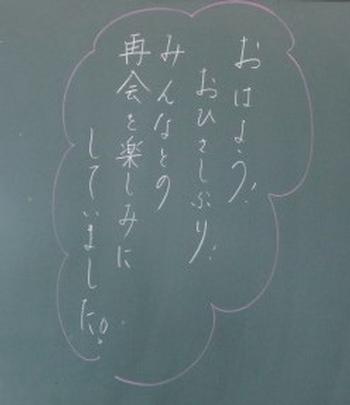 おはよう!
おひさしぶり!
みんなとの
再会を楽しみに
していました。